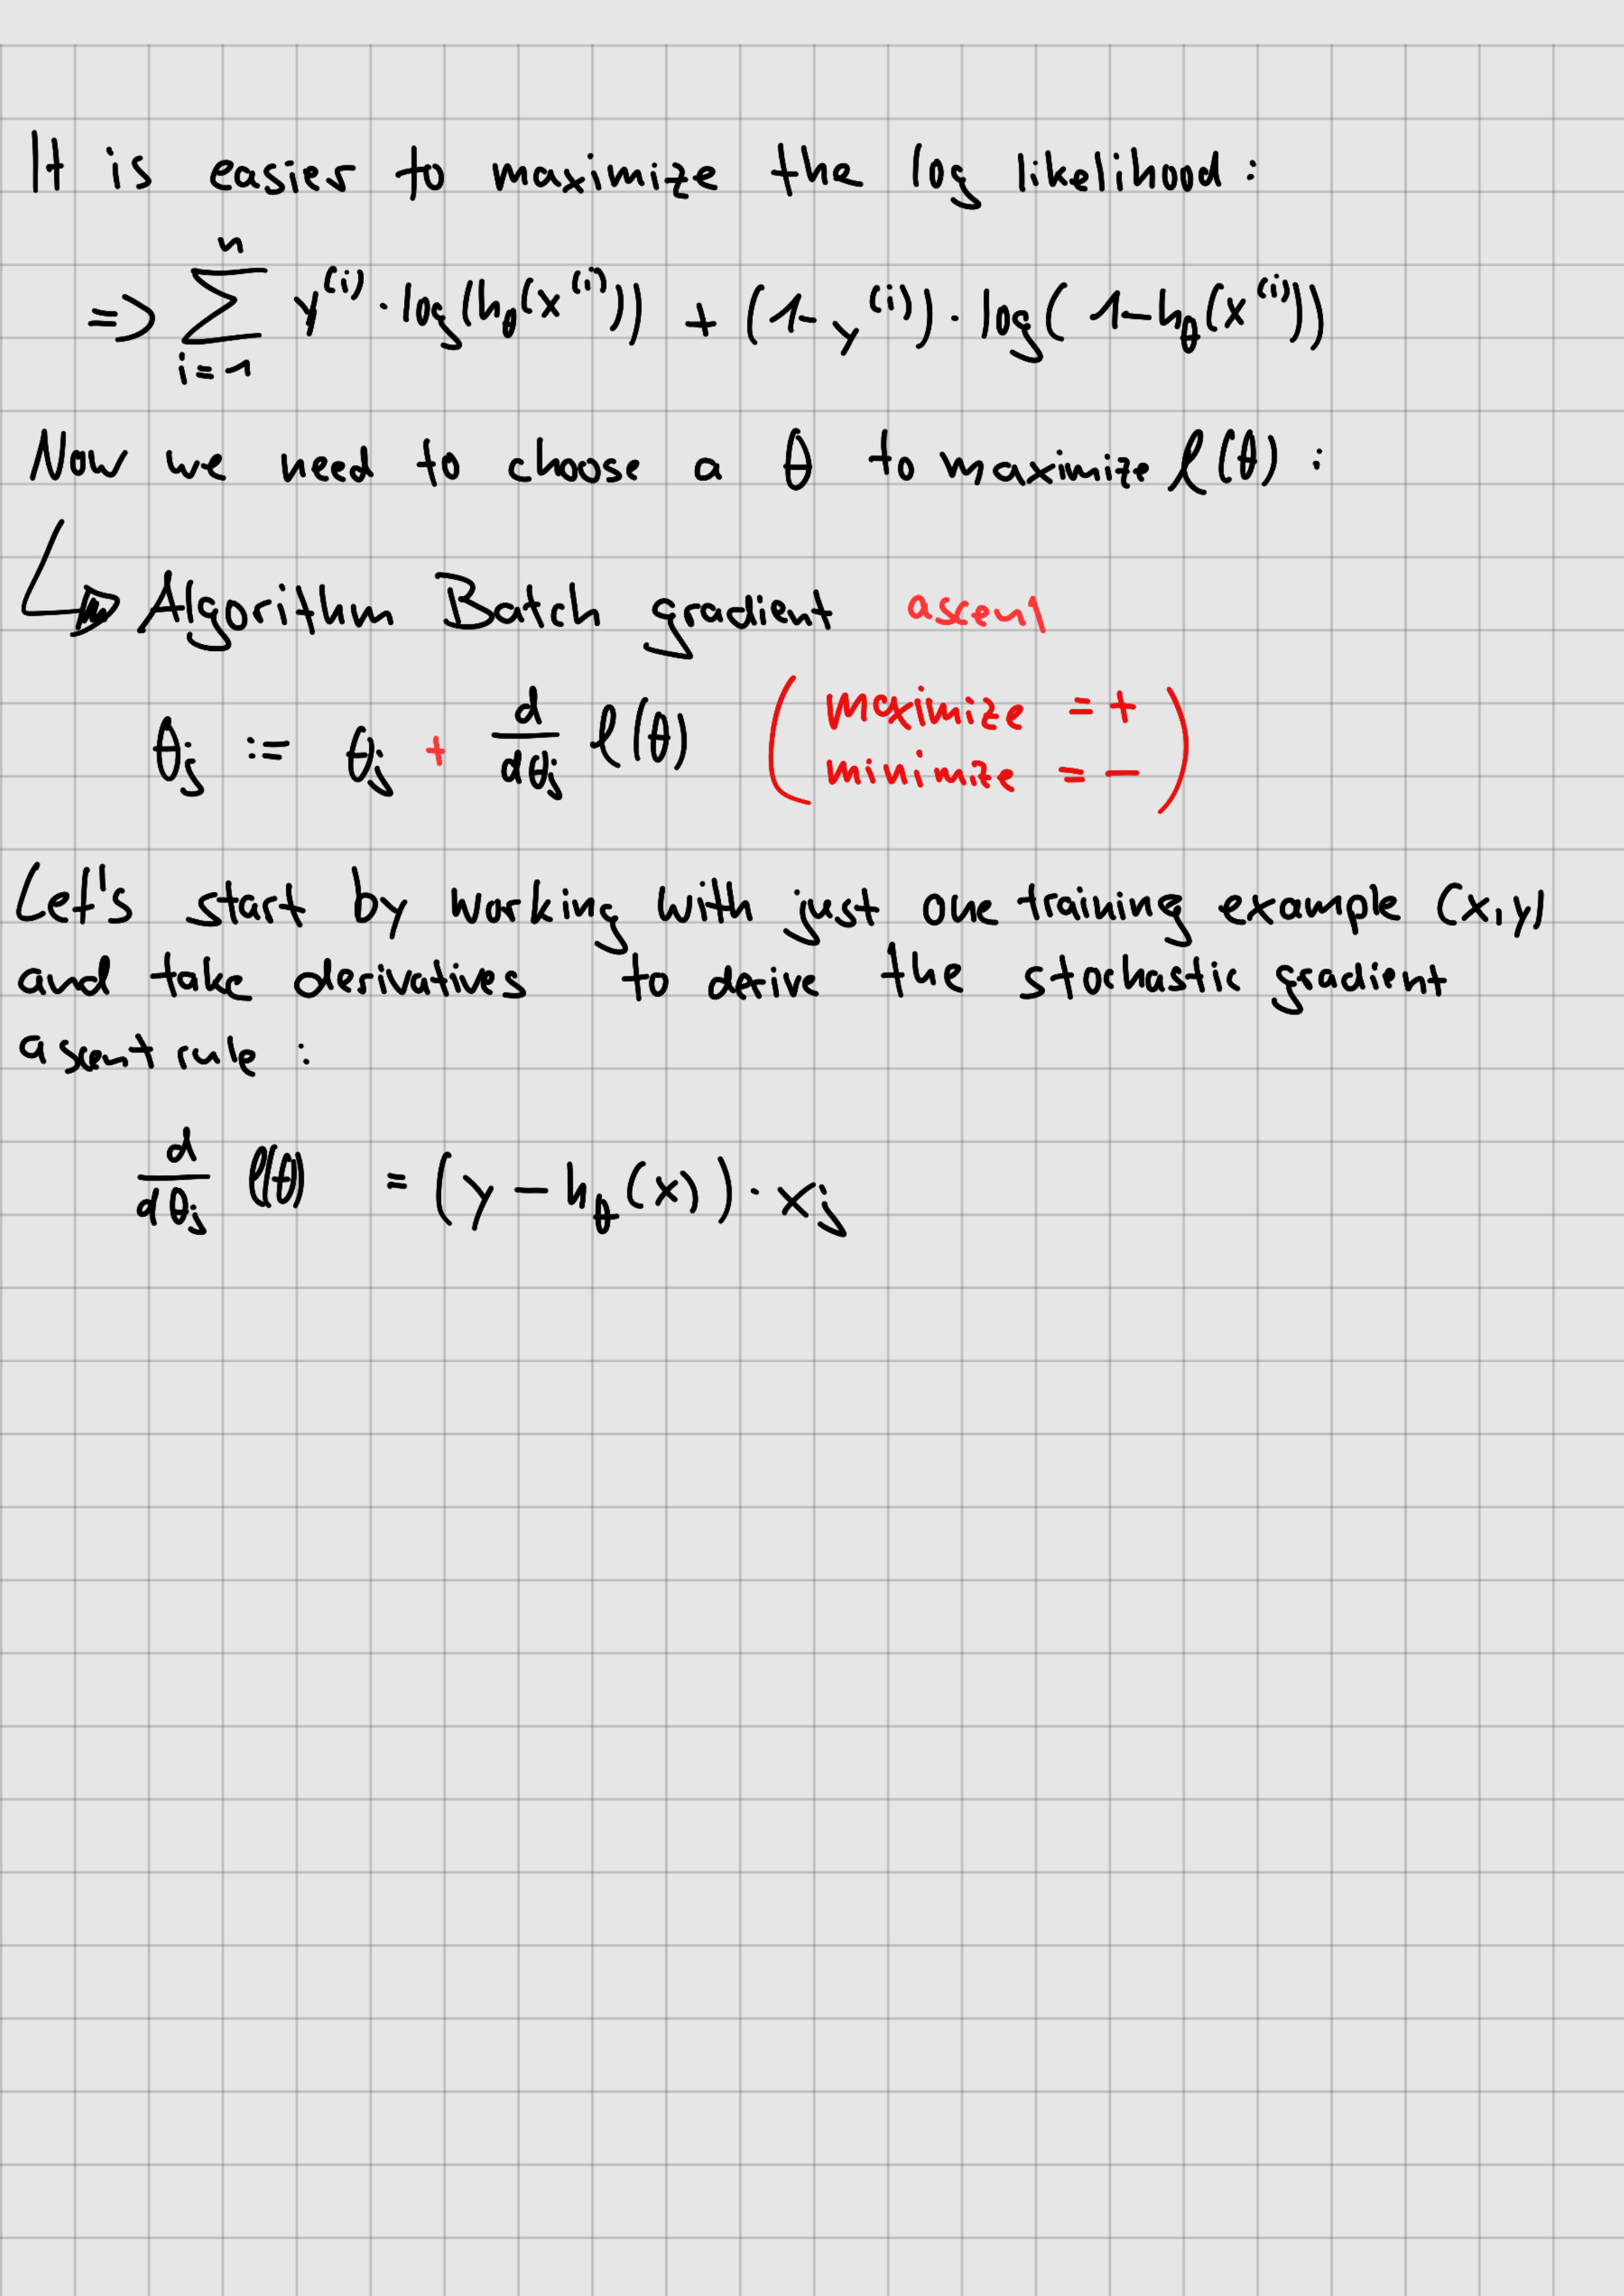 It is easier to maximize the log likelihood :
=> ∑_{i=1}^{n} y^{(i)} · log(h_θ(x^{(i)})) + (1-y^{(i)}) · log(1-h_θ(x^{(i)}))
Now we need to choose a θ to maximize ℓ(θ) :
↳ Algorithm Batch gradient ascent
θ_j := θ_j + d/dθ_j ℓ(θ) ( maximize = +
minimize = − )
Let's start by working with just one training example (x,y)
and take derivatives to derive the stochastic gradient
ascent rule :
d/dθ_j ℓ(θ) = (y − h_θ(x)) · x_j